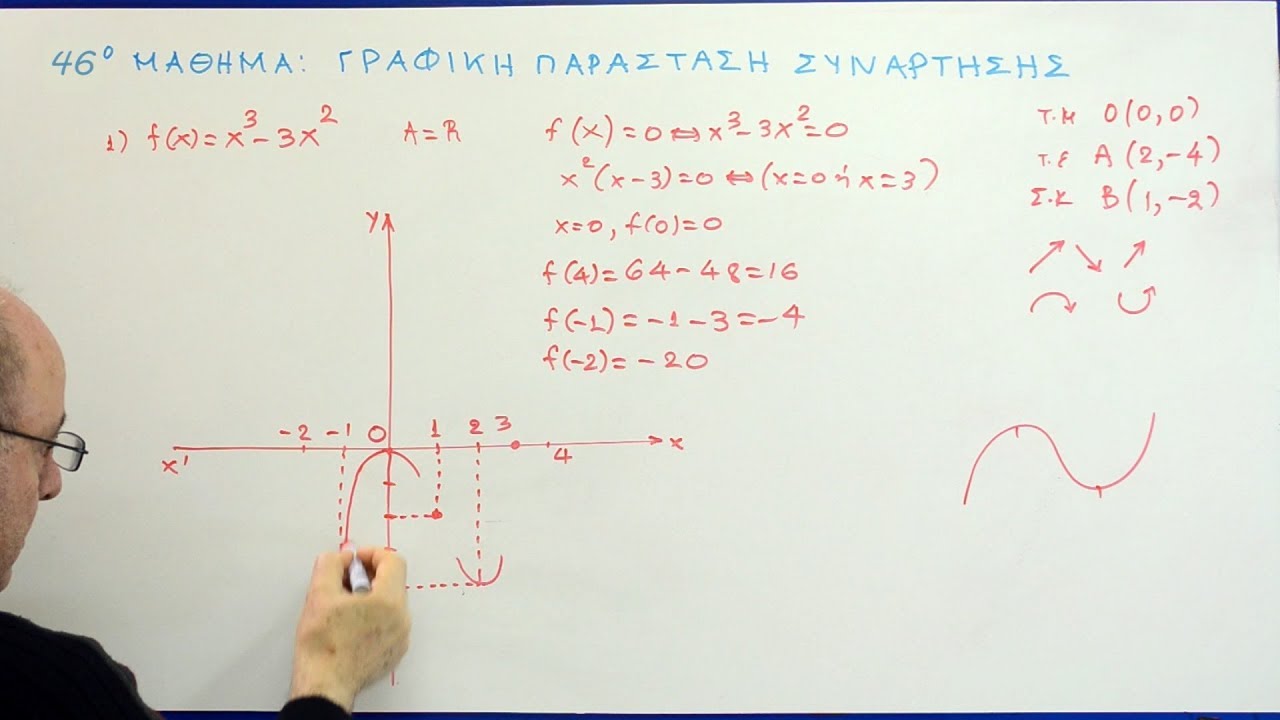 46º ΜΑΘΗΜΑ: ΓΡΑΦΙΚΗ ΠΑΡΑΣΤΑΣΗ ΣΥΝΑΡΤΗΣΗΣ
1) f(x)=x³-3x² A=R
f(x)=0⇔x³-3x²=0
x²(x-3)=0⇔(x=0 ή x=3)
x=0, f(0)=0
f(4)=64-48=16
f(-1)=-1-3=-4
f(-2)=-20
Τ.Μ O(0,0)
Τ.Ε A(2,-4)
Σ.Κ B(1,-2)
y
-2 -1 0 1 2 3
x' 4 x